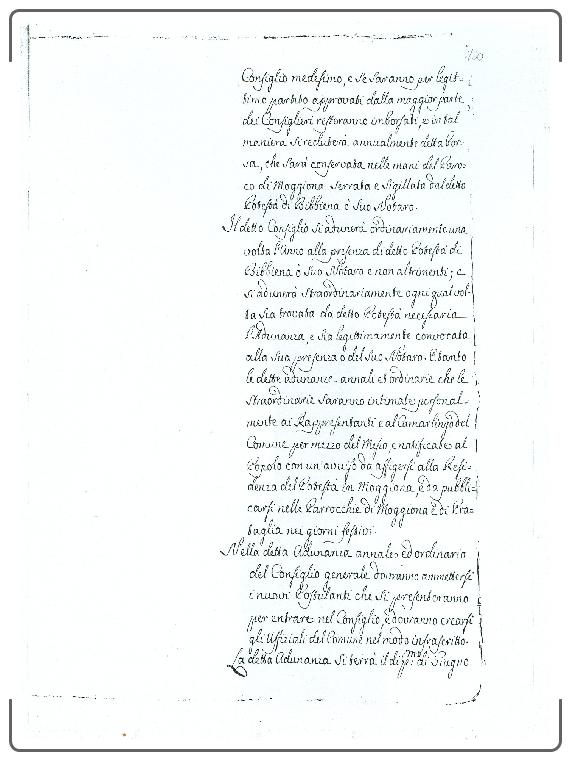 Consiglio medesimo, e se saranno per legit-
timo partito approvati dalla maggior parte
dei Consiglieri resteranno imborsati, e in tal
maniera si recluterà annualmente detta bor-
sa, che sarà conservata nelle mani del Paro-
co di Moggiona serrata e sigillata dal detto
Potestà di Bibbiena ò suo Notaro.
Il detto Consiglio si adunerà ordinariamente una
volta l'Anno alla presenza di detto Potestà di
Bibbiena ò suo Notaro e non altrimenti; e
si adunerà straordinariamente ogni qual vol-
ta sia trovata da detto Potestà necessaria
l'Adunanza, e sia legittimamente convocata
alla sua presenza o del suo Notaro. E tanto
le dette adunanze annali ed ordinarie che le
straordinarie saranno intimate personal-
mente ai Rappresentanti e al Camarlingo del
Comune per mezzo del Messo, e notificate al
Popolo con un avviso da affigersi alla Resi-
denza del Potestà in Moggiona, e da pubbli-
carsi nelle Parrocchie di Moggiona e di Pra-
taglia nei giorni festivi.
Nella detta Adunanza annale, ed ordinaria
del Consiglio generale dovranno ammettersi
i nuovi Possidenti che si presenteranno
per entrare nel Consiglio, e dovranno crearsi
gli Uffiziali del Comune nel modo infrascritto.
La detta Adunanza si terrà il dì p:mo di Giugno